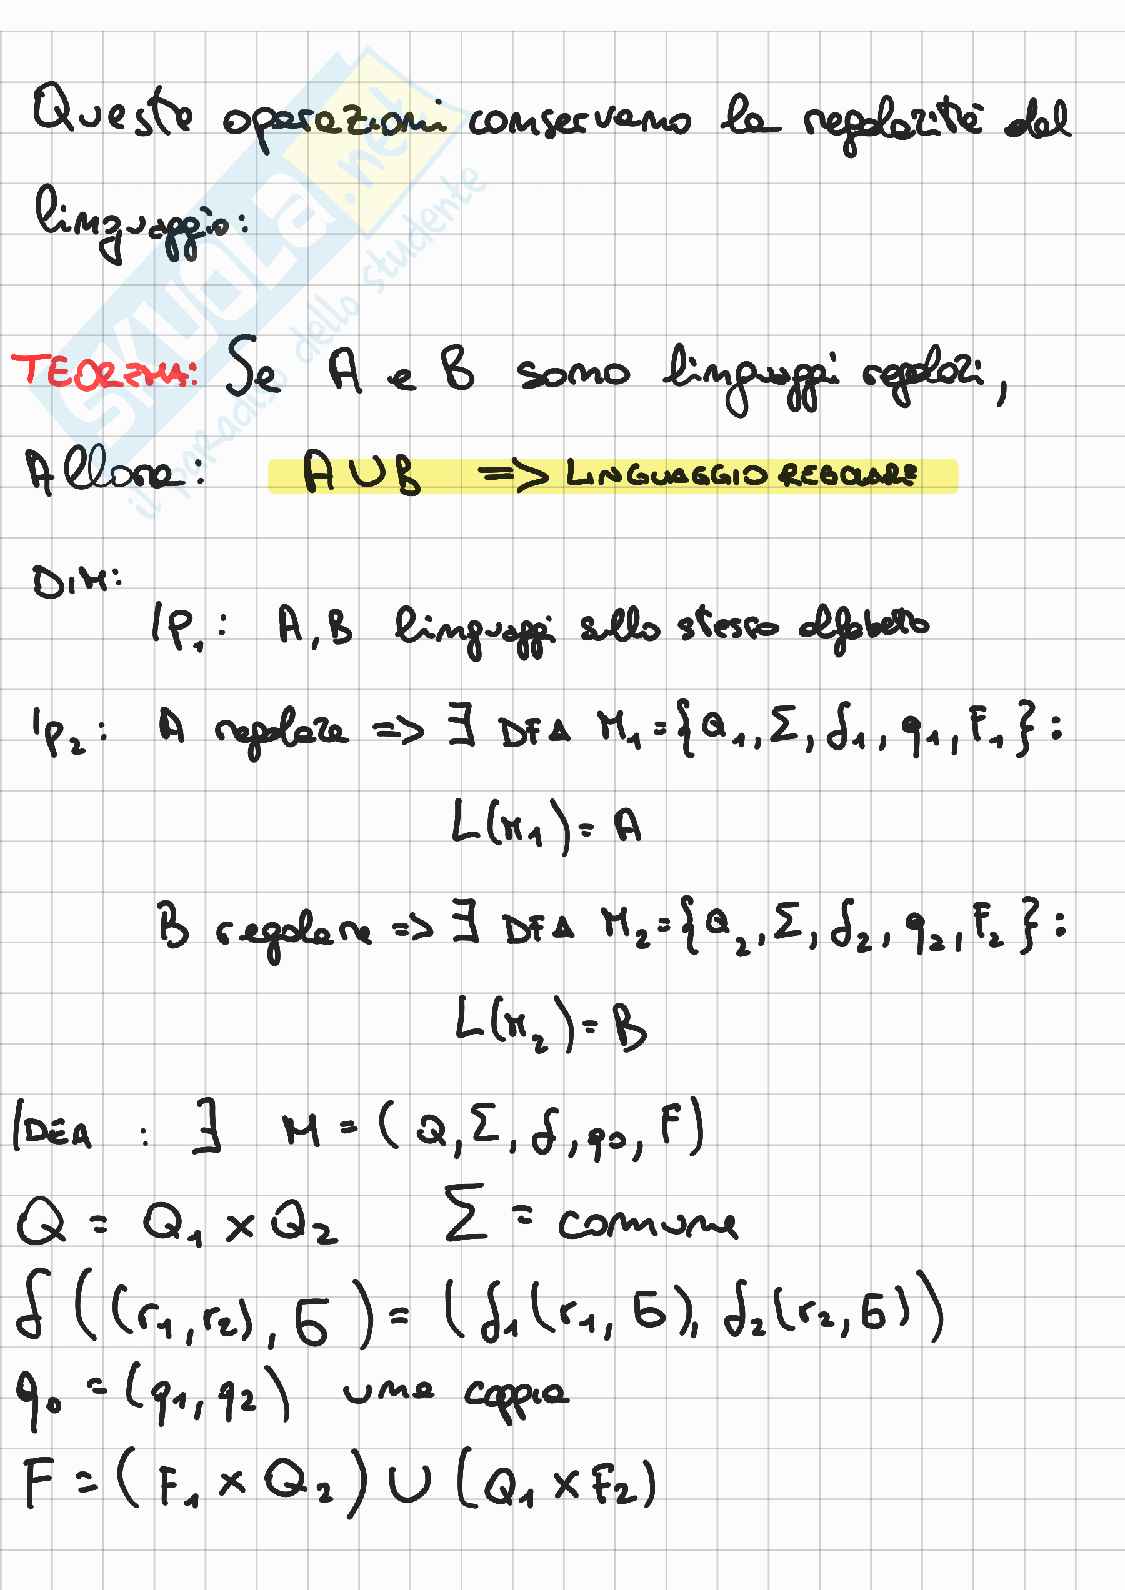 Queste operazioni conservano la regolarità del
linguaggio:
TEOREMA: Se A e B sono linguaggi regolari,
Allora: A ∪ B => LINGUAGGIO REGOLARE
DIM:
IP₁: A, B linguaggi sullo stesso alfabeto
IP₂: A regolare => ∃ DFA M₁={Q₁, Σ, δ₁, q₁, F₁}:
L(M₁) = A
B regolare => ∃ DFA M₂={Q₂, Σ, δ₂, q₂, F₂}:
L(M₂) = B
IDEA : ∃ M = (Q, Σ, δ, q₀, F)
Q = Q₁ × Q₂ Σ = comune
δ((r₁, r₂), σ) = (δ₁(r₁, σ), δ₂(r₂, σ))
q₀ = (q₁, q₂) una coppia
F = (F₁ × Q₂) ∪ (Q₁ × F₂)
SKUOLA.net
il paradiso dello studente